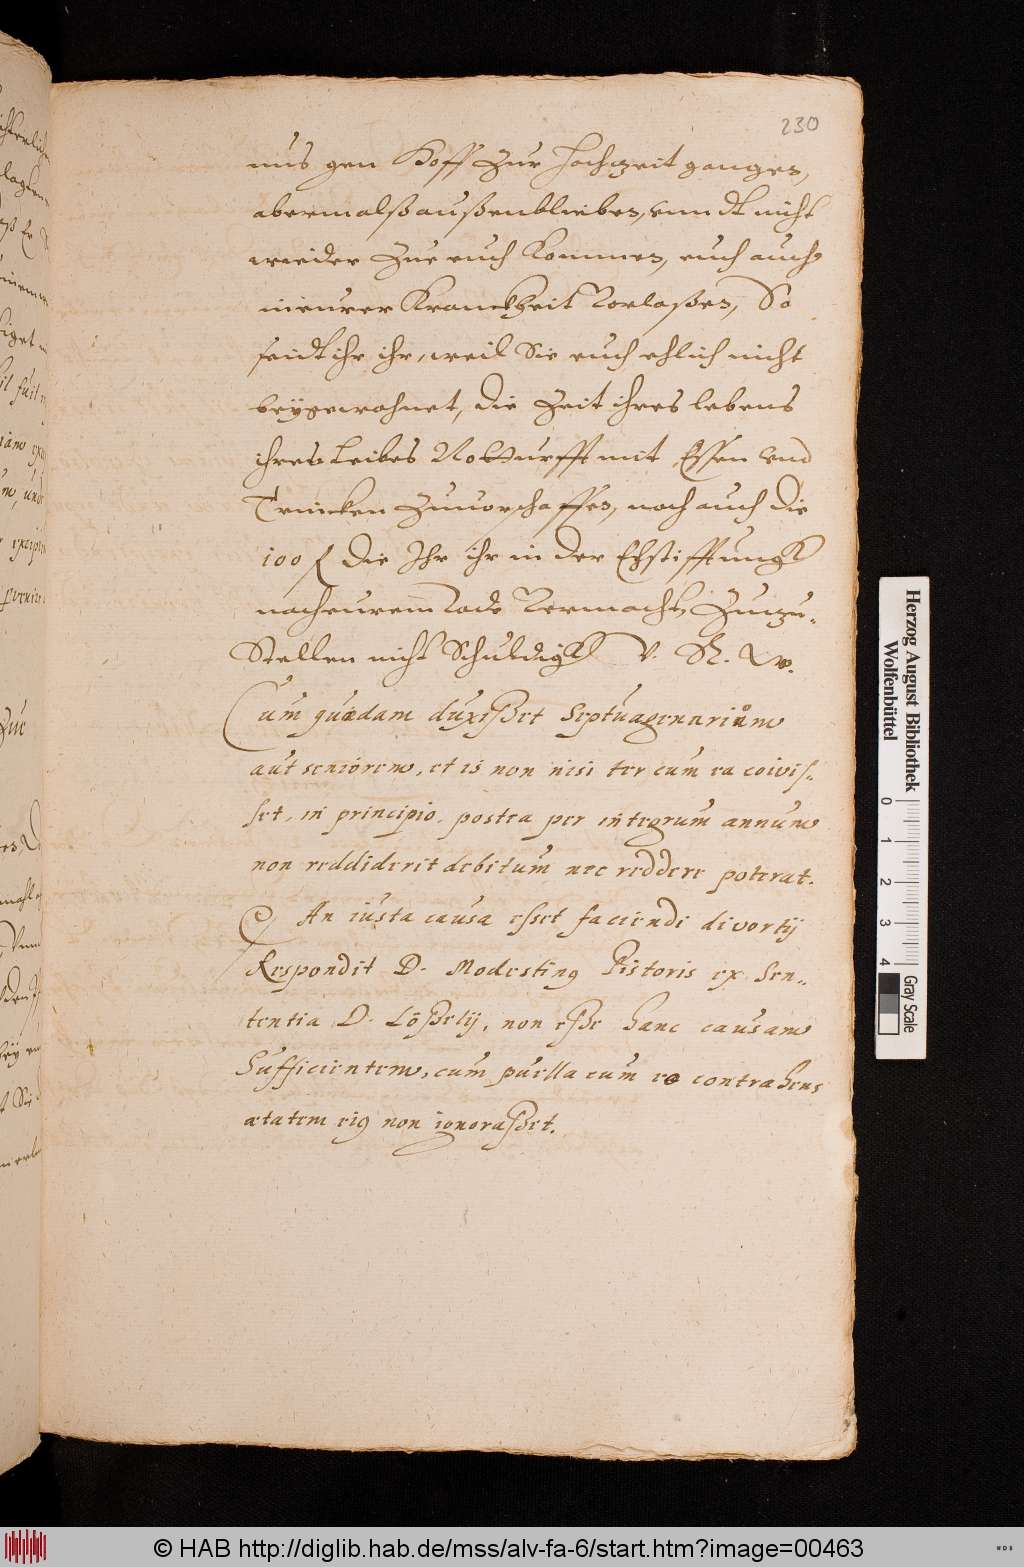 230
nus gen Hoff Zur hochzeit gangen,
abermalß außenblieben, vnndt nicht
wieder Zue euch kommen, euch auch
in eurer Kranckheit Vorlaßen, So
seidt ihr ihr, weil Sie euch ehlich nicht
beÿgewohnet, die Zeit ihres lebens
ihres Leibes Notturfft mit Essen vnd
Trincken Zuuorschaffen, noch auch die
100 f die Ihr ihr in der Ehstifftungk
nach eurem Tode Vermacht, Zuzu-
Stellen nicht Schuldigk V. R. W.
Cum quædam duxißet Septuagenarium
aut seniorem, et is non nisi ter cum ea coivis-
set, in principio, postea per integrum annum
non reddiderit debitum nec reddere poterat.
An iusta causa esset faciendi divortij
Respondit D. Modestinq Pistoris ex Sen-
tentia D. Lößelij, non eße hanc causam
Sufficientem, cum puella cum eo contrahens
ætatem eiq non ignoraßet.
Zue
Herzog August Bibliothek
Wolfenbüttel
0 1 2 3 4
Gray Scale
© HAB http://diglib.hab.de/mss/alv-fa-6/start.htm?image=00463